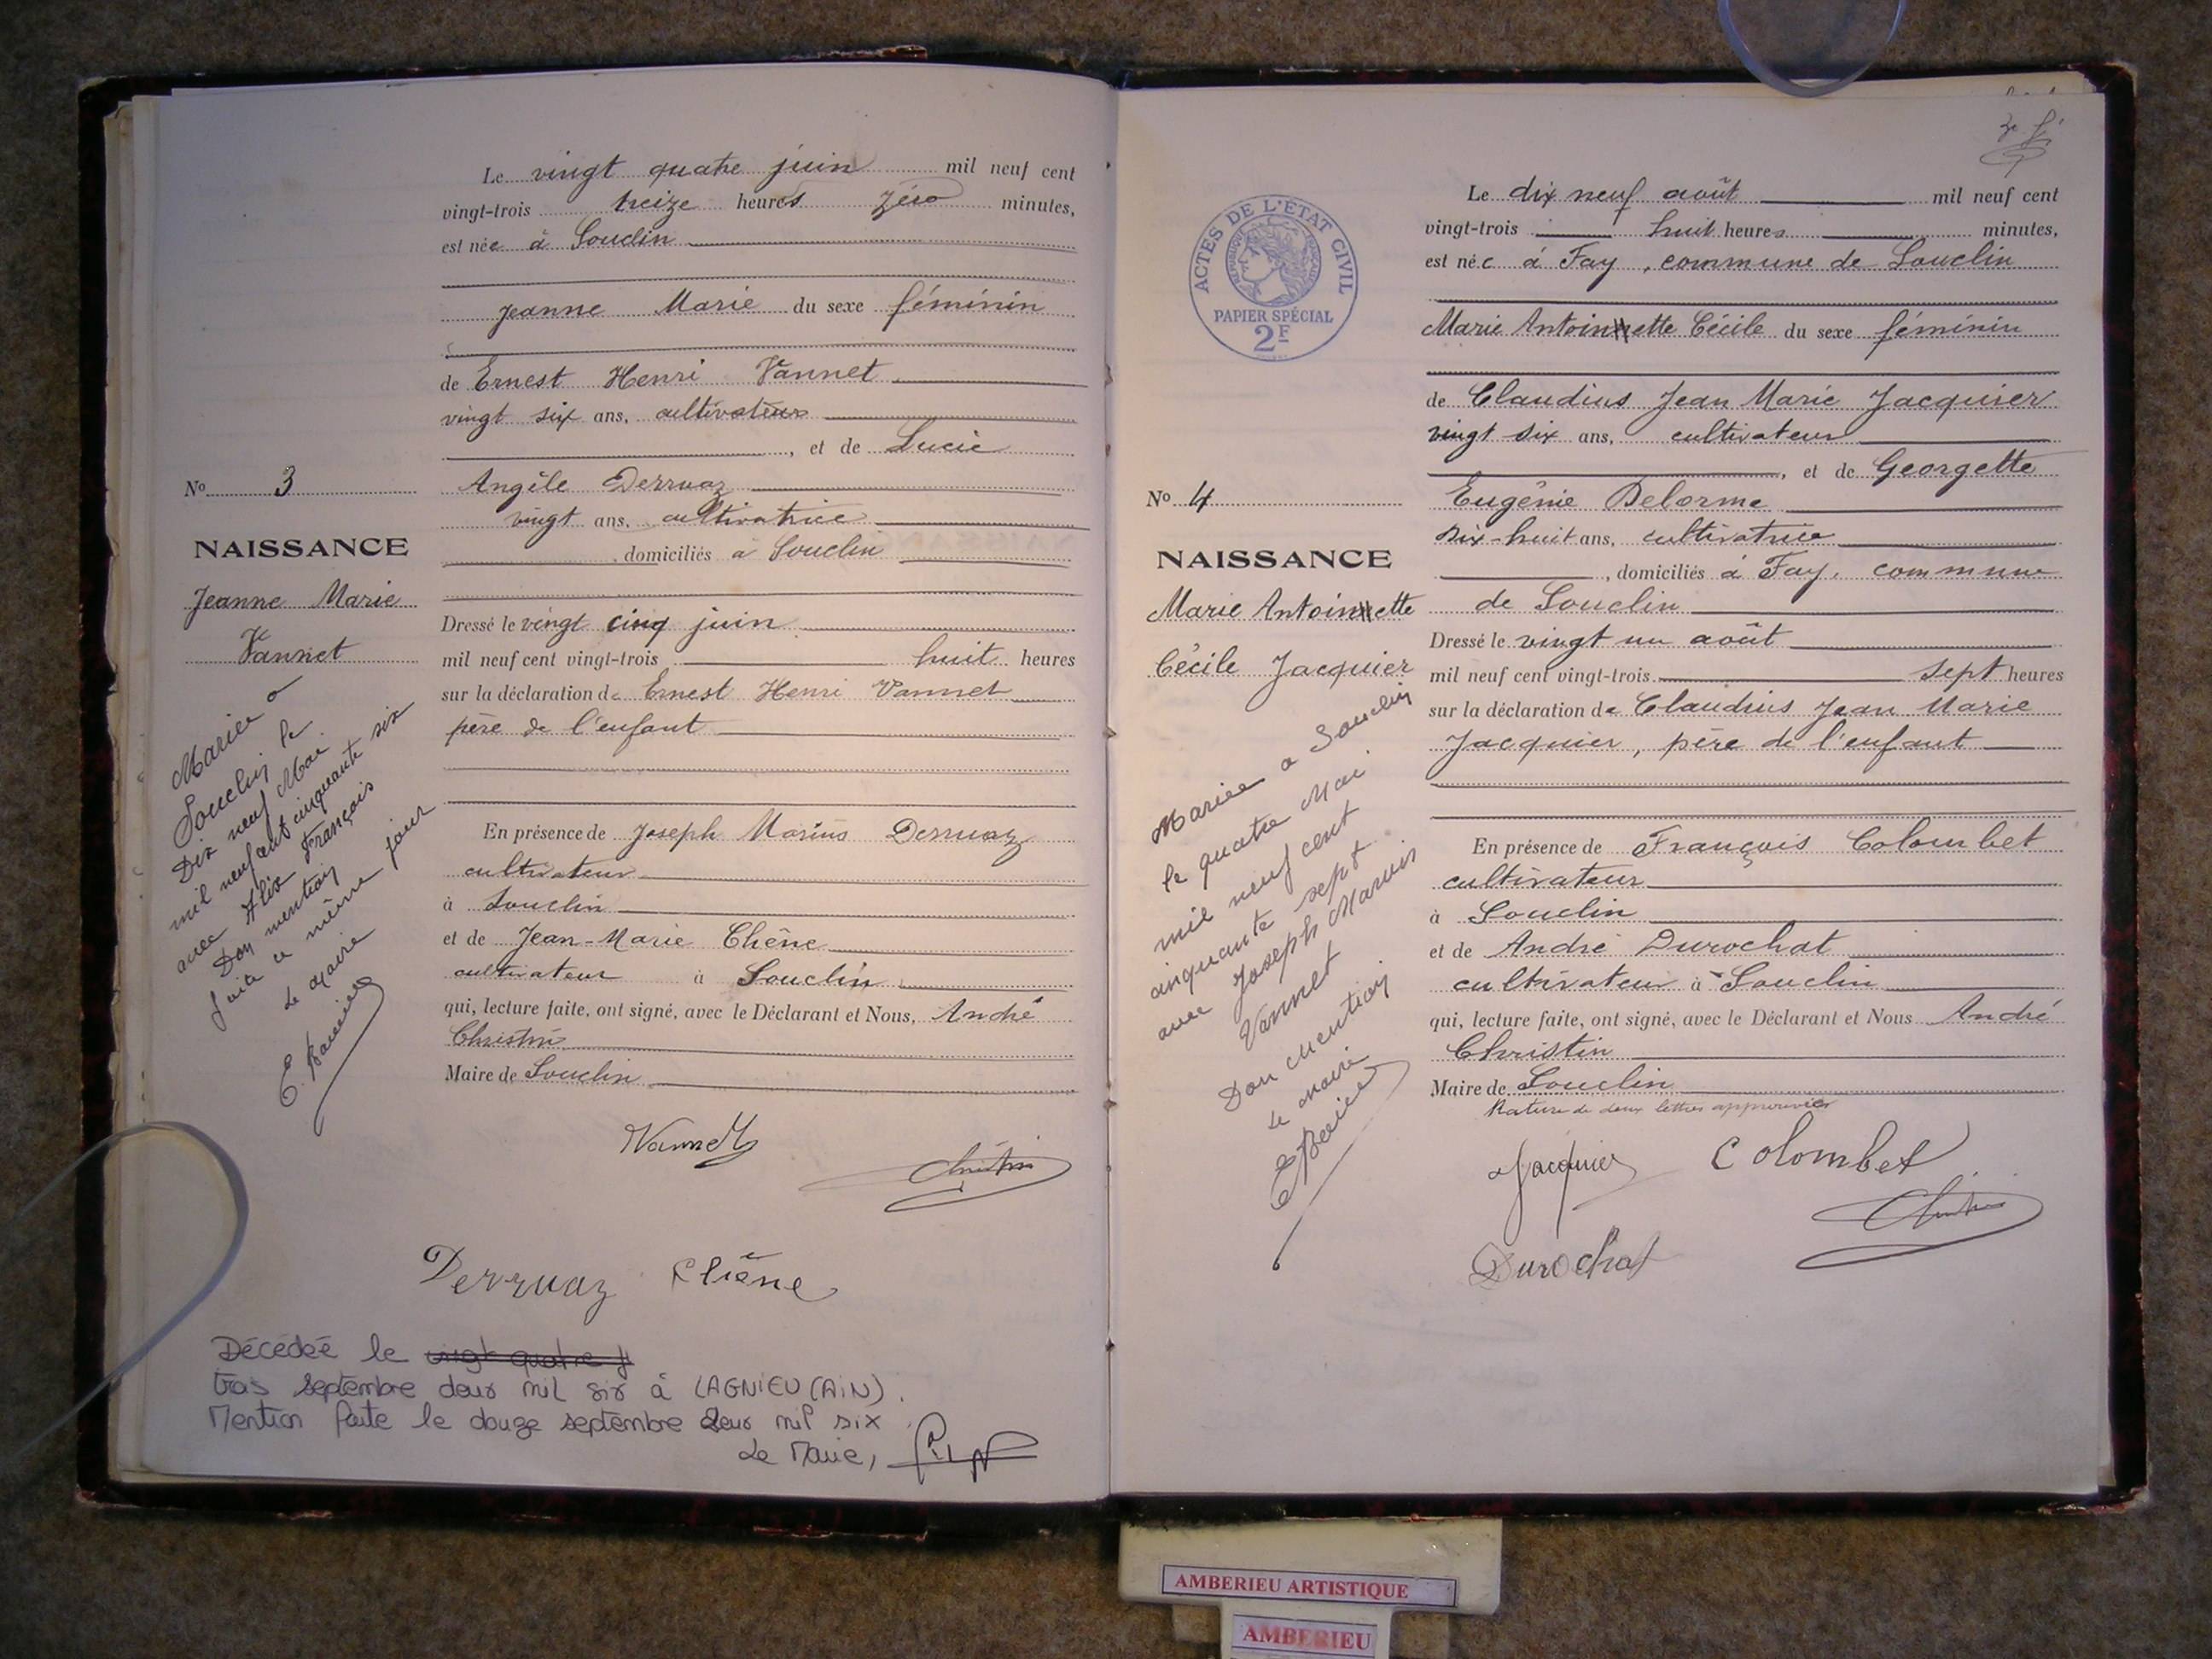 Le vingt quatre juin mil neuf cent
vingt-trois treize heures zéro minutes,
est née à Souclin
Jeanne Marie du sexe féminin
de Ernest Henri Vannet
vingt six ans, cultivateur
, et de Lucie
Angèle Derruaz
vingt ans, cultivatrice
, domiciliés à Souclin
Dressé le vingt cinq juin
mil neuf cent vingt-trois huit heures
sur la déclaration de Ernest Henri Vannet
père de l'enfant
En présence de Joseph Marius Derruaz
cultivateur
à Souclin
et de Jean-Marie Chêne
cultivateur à Souclin
qui, lecture faite, ont signé, avec le Déclarant et Nous, André
Christin
Maire de Souclin
Vannet
Christin
Derruaz Chêne
No 3
NAISSANCE
Jeanne Marie
Vannet
Mariée à
Souclin le
Dix neuf Mai
mil neuf cent cinquante six
avec Alix François
Don mention
faite ce même jour
Le Maire
Décédée le vingt quatre
trois septembre deux mil six à LAGNIEU (AIN).
Mention faite le douze septembre deux mil six
Le Maire,
Le dix neuf août mil neuf cent
vingt-trois huit heures minutes,
est née à Fay, commune de Souclin
Marie Antoinette Cécile du sexe féminin
de Claudius Jean Marie Jacquier
vingt six ans, cultivateur
, et de Georgette
Eugénie Delorme
dix-huit ans, cultivatrice
, domiciliés à Fay, commune
de Souclin
Dressé le vingt un août
mil neuf cent vingt-trois sept heures
sur la déclaration de Claudius Jean Marie
Jacquier, père de l'enfant
En présence de François Colombet
cultivateur
à Souclin
et de André Durochat
cultivateur à Souclin
qui, lecture faite, ont signé, avec le Déclarant et Nous André
Christin
Maire de Souclin
Rature de deux lettres approuvées
Jacquier Colombet
Christin
Durochat
ACTES DE L'ETAT CIVIL
REPUBLIQUE FRANÇAISE
PAPIER SPÉCIAL
2F
No 4
NAISSANCE
Marie Antoinette
Cécile Jacquier
Mariée à Souclin
le quatre Mai
mil neuf cent
cinquante sept
avec Joseph Marius
Vannet
Don mention
Le Maire
AMBERIEU ARTISTIQUE
AMBERIEU